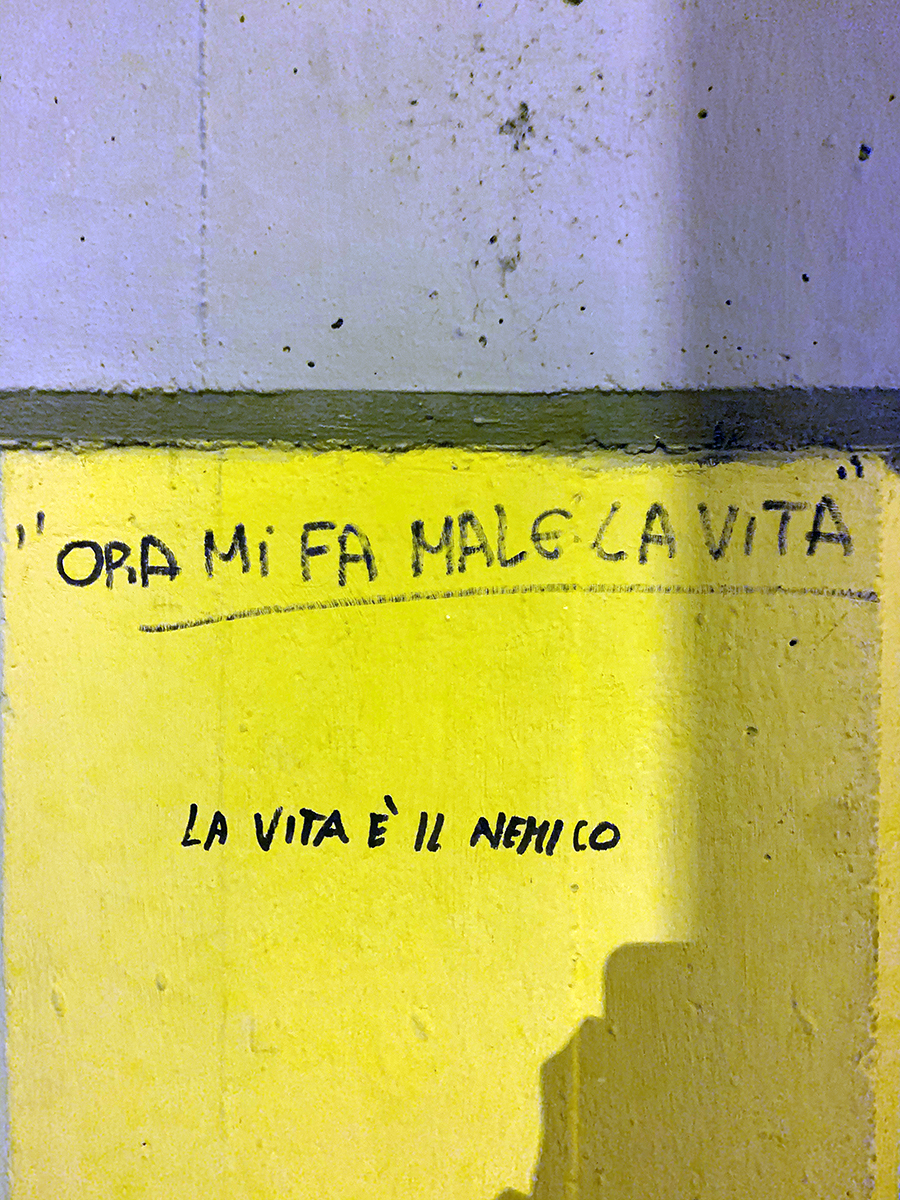 "ORA MI FA MALE LA VITA"
LA VITA È IL NEMICO